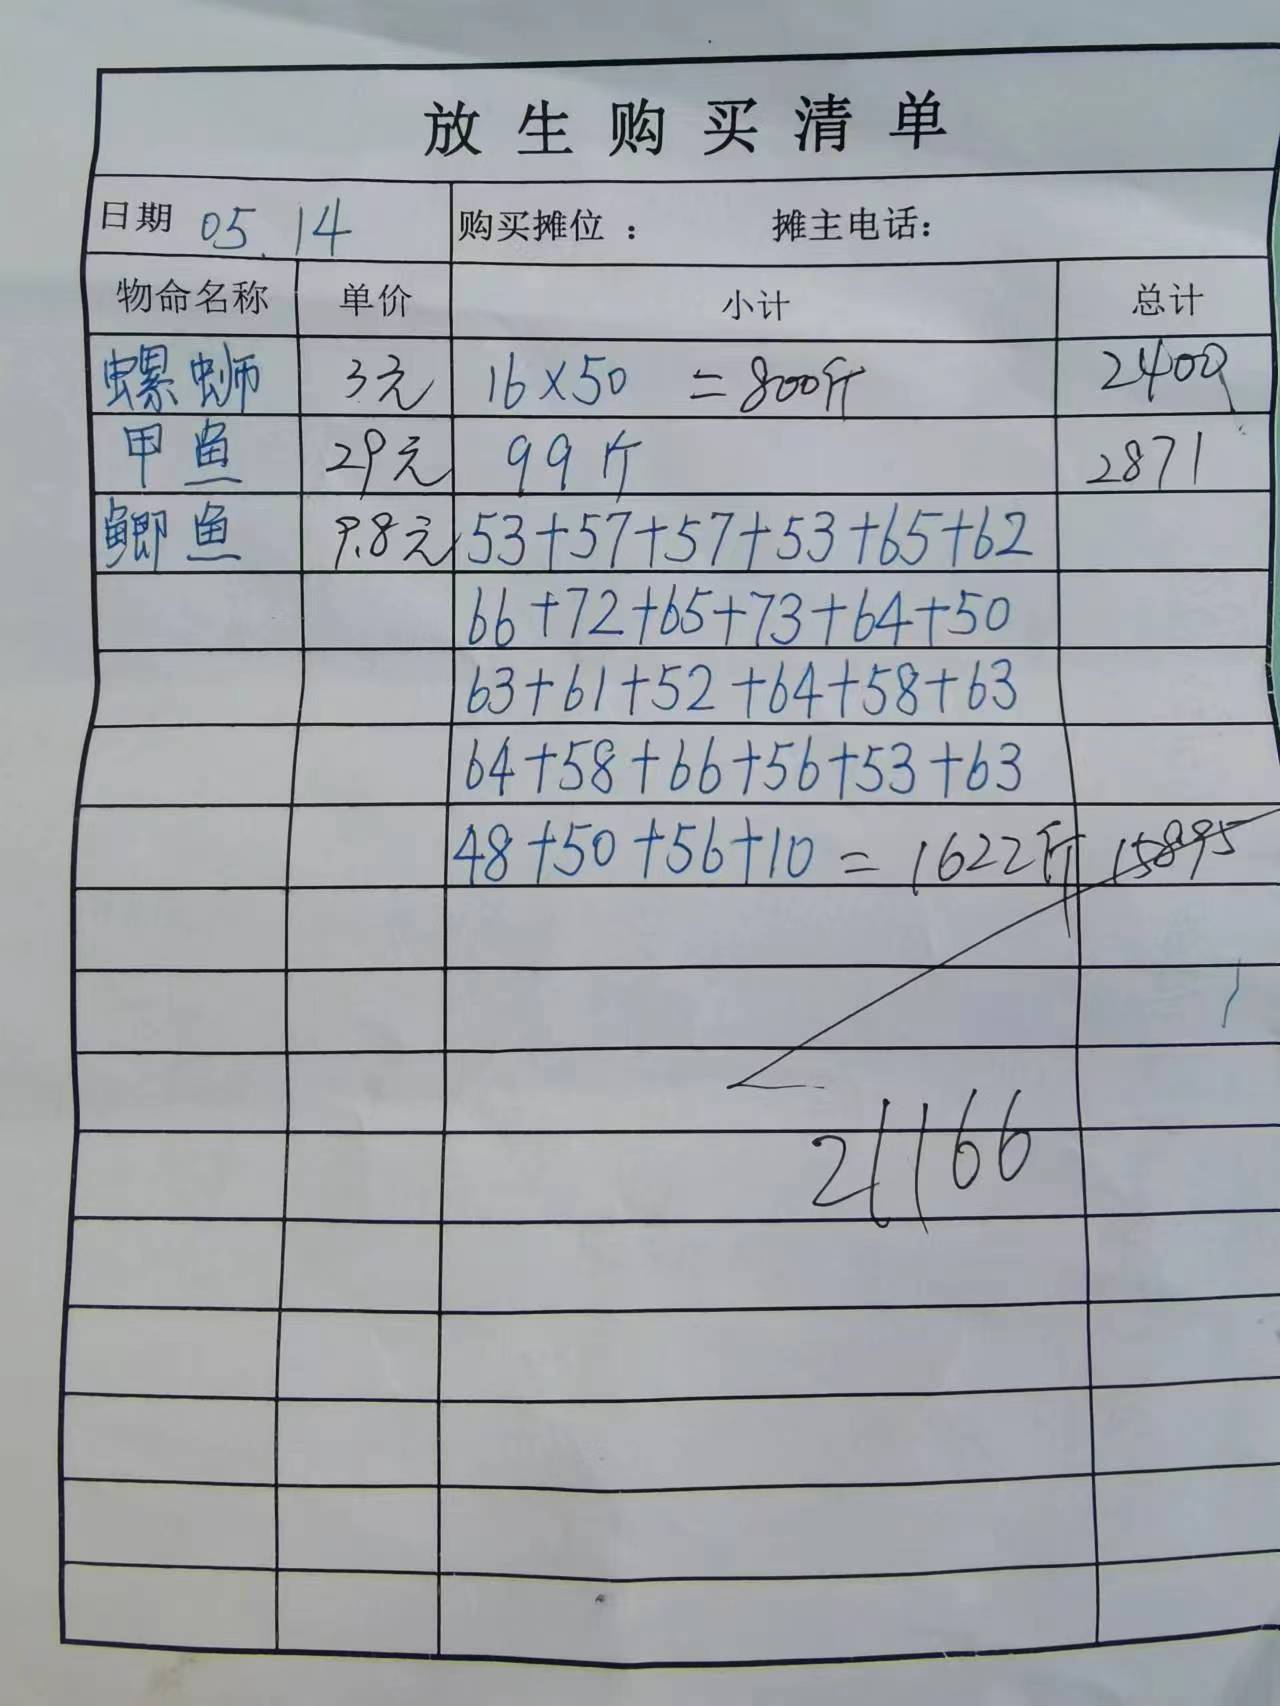 放生购买清单
日期 05.14 购买摊位： 摊主电话：
物命名称 单价 小计 总计
螺蛳 3元 16×50 =800斤 2400
甲鱼 29元 99斤 2871
鲫鱼 9.8元 53+57+57+53+65+62
66+72+65+73+64+50
63+61+52+64+58+63
64+58+66+56+53+63
48+50+56+10 = 1622斤 15895
21166